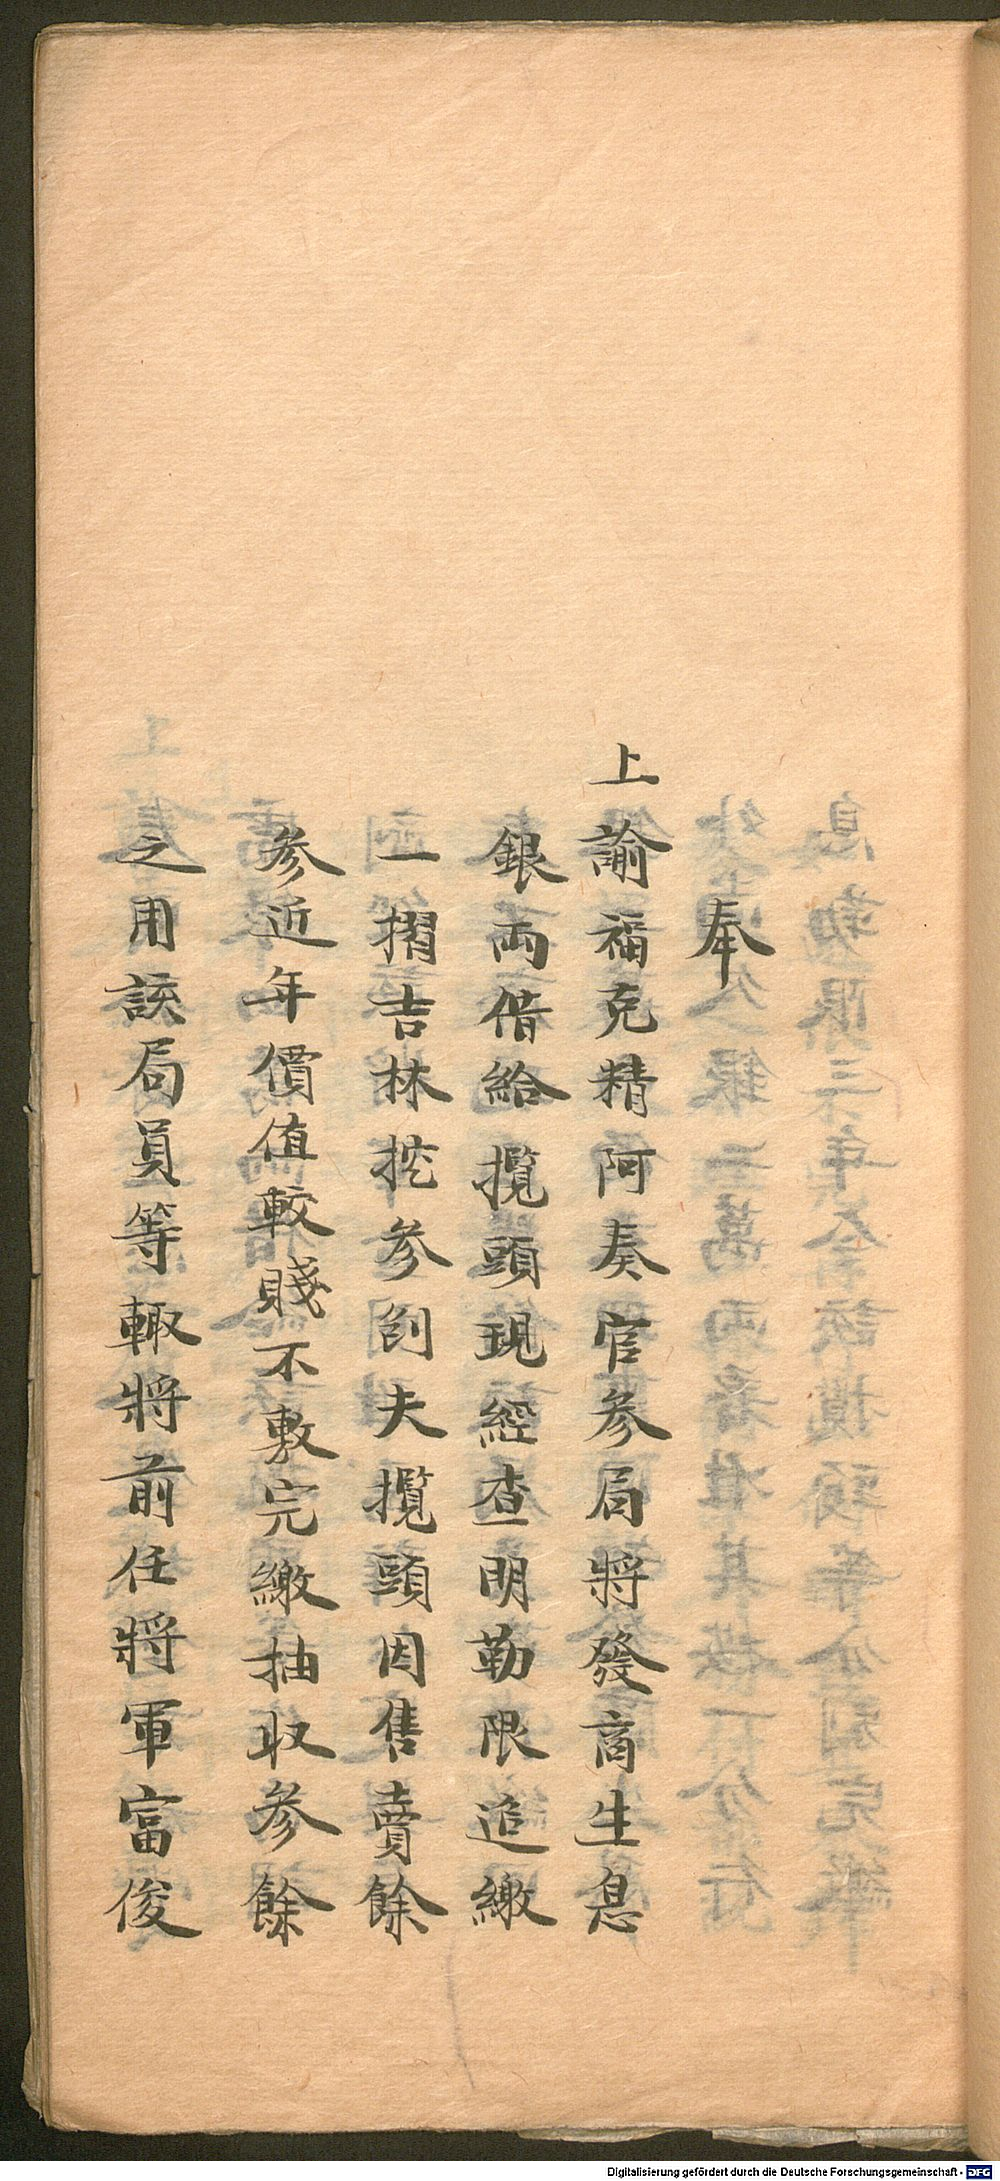 奉
上諭福克精阿奏官参局將發商生息
銀両借給攬頭現經查明勒限追繳
一摺吉林挖参刨夫攬頭因售賣餘
参近年價值較賤不敷完繳抽収参餘
之用該局員等輙將前任將軍富俊
Digitalisierung gefördert durch die Deutsche Forschungsgemeinschaft - DFG